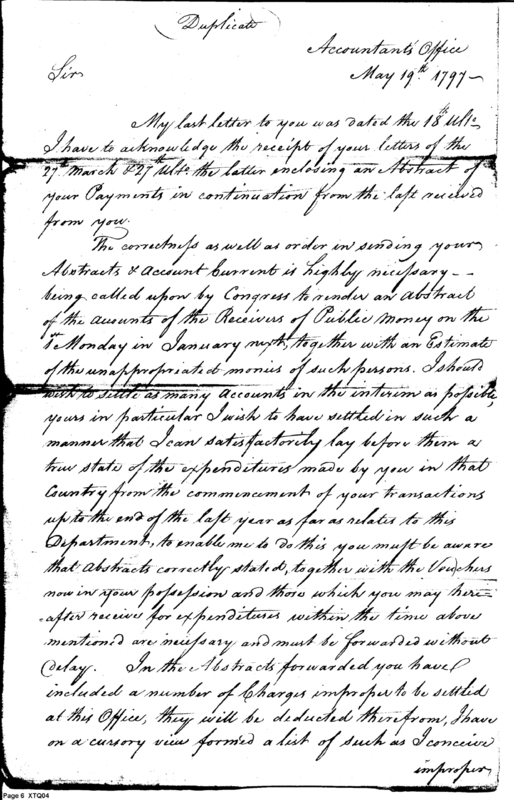 Duplicate
Accountant's Office
Sir
May 19th 1797-
My last letter to you was dated the 18th Ulto
I have to acknowledge the receipt of your letters of the
27th March & 27th Ulto the latter enclosing an Abstract of
your Payments in continuation from the last received
from you.
The correctness as well as order in sending your
Abstracts & Account Current is highly necessary --
being called upon by Congress to render an abstract
of the accounts of the Receivers of Public money on the
1st Monday in January next, together with an Estimate
of the unappropriated monies of such persons. I should
wish to settle as many accounts in the interim as possible,
yours in particular I wish to have settled in such a
manner that I can satisfactorily lay before them a
true state of the expenditures made by you in that
Country from the commencement of your transactions
up to the end of the last year as far as relates to this
Department, to enable me to do this you must be aware
that Abstracts correctly stated, together with the Vouchers
now in your possession and those which you may here=
=after receive for expenditures within the time above
mentioned are necessary and must be forwarded without
delay. In the Abstracts forwarded you have
included a number of Charges improper to be settled
at this Office, they will be deducted therefrom, I have
on a cursory view formed a list of such as I conceive
improper
Page 6 XTQ04